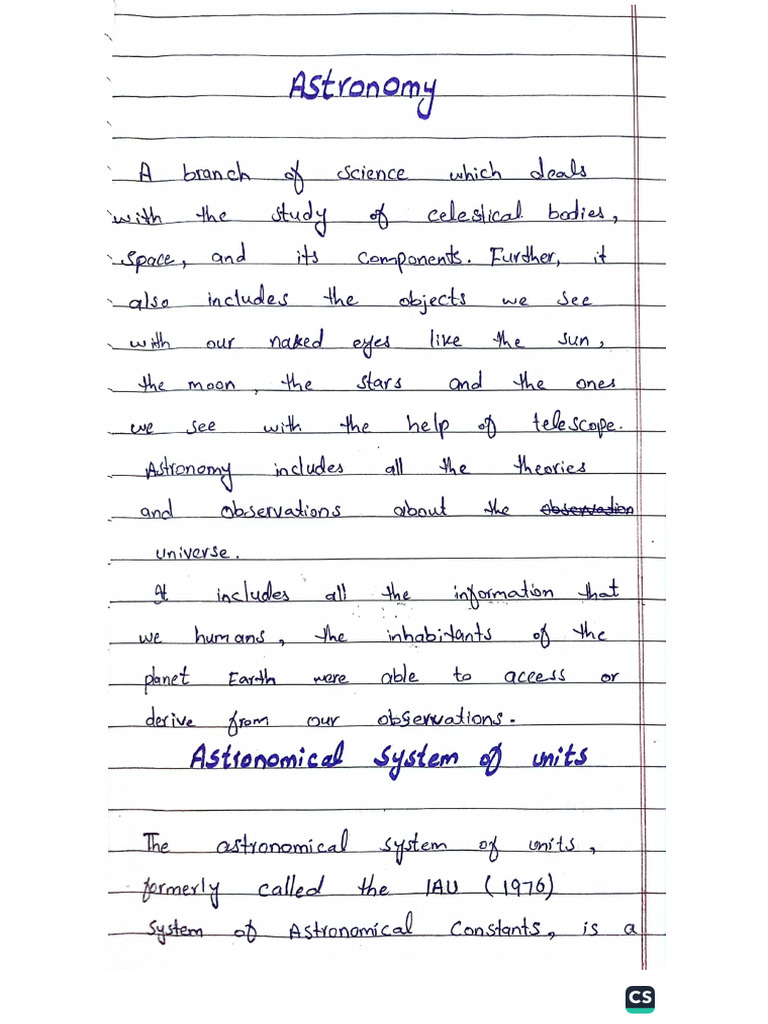 Astronomy
A branch of science which deals
with the study of celestical bodies,
space, and its components. Further, it
also includes the objects we see
with our naked eyes like the sun,
the moon, the stars and the ones
we see with the help of telescope.
Astronomy includes all the theories
and observations about the observation
universe.
It includes all the information that
we humans, the inhabitants of the
planet Earth were able to access or
derive from our observations.
Astronomical system of units
The astronomical system of units,
formerly called the IAU (1976)
System of Astronomical Constants, is a
CS